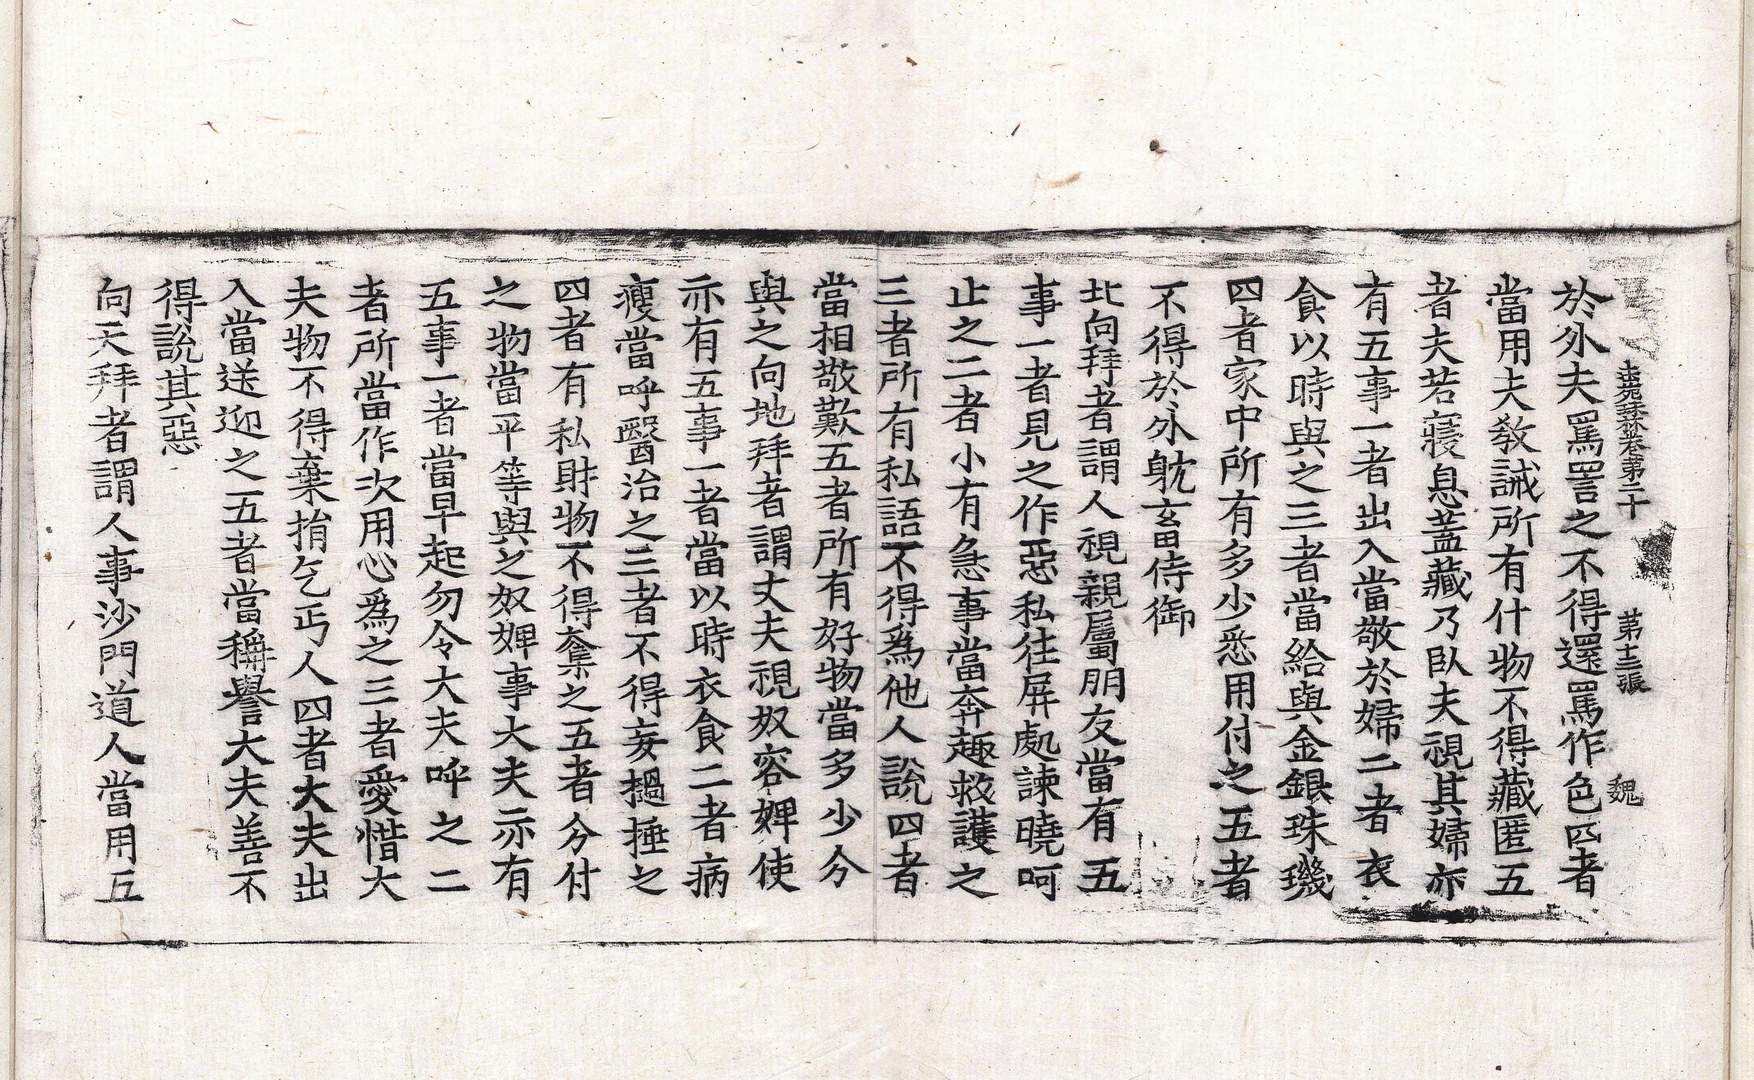 法苑珠林卷第二十 第十三張 魏
於外夫罵詈之不得還罵作色四者
當用夫教誡所有什物不得藏匿五
者夫若寢息蓋藏乃臥夫視其婦亦
有五事一者出入當敬於婦二者衣
食以時與之三者當給與金銀珠璣
四者家中所有多少悉用付之五者
不得於外躭畜侍御
北向拜者謂人視親屬朋友當有五
事一者見之作惡私往屏處諫曉呵
止之二者小有急事當奔趣救護之
三者所有私語不得爲他人說四者
當相敬歎五者所有好物當多少分
與之向地拜者謂丈夫視奴容婢使
亦有五事一者當以時衣食二者病
瘦當呼醫治之三者不得妄撾捶之
四者有私財物不得奪之五者分付
之物當平等與之奴婢事大夫亦有
五事一者當早起勿令大夫呼之二
者所當作次用心爲之三者愛惜大
夫物不得棄捐乞丐人四者大夫出
入當送迎之五者當稱譽大夫善不
得說其惡
向天拜者謂人事沙門道人當用五